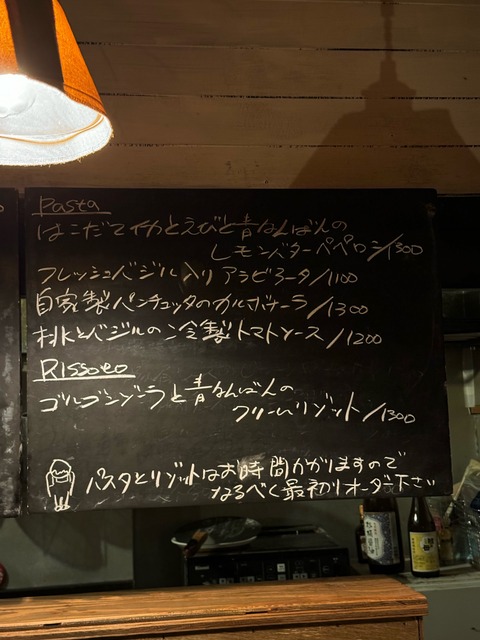 Pasta
はこだてイカとえびと青なんばんの
レモンバターペペロン/1300
フレッシュバジル入りアラビアータ/1100
自家製パンチェッタのカルボナーラ/1300
桃とバジルの冷製トマトソース/1200
Rissoto
ゴルゴンゾーラと青なんばんの
クリームリゾット/1300
パスタとリゾットはお時間かかりますので
なるべく最初にオーダー下さい